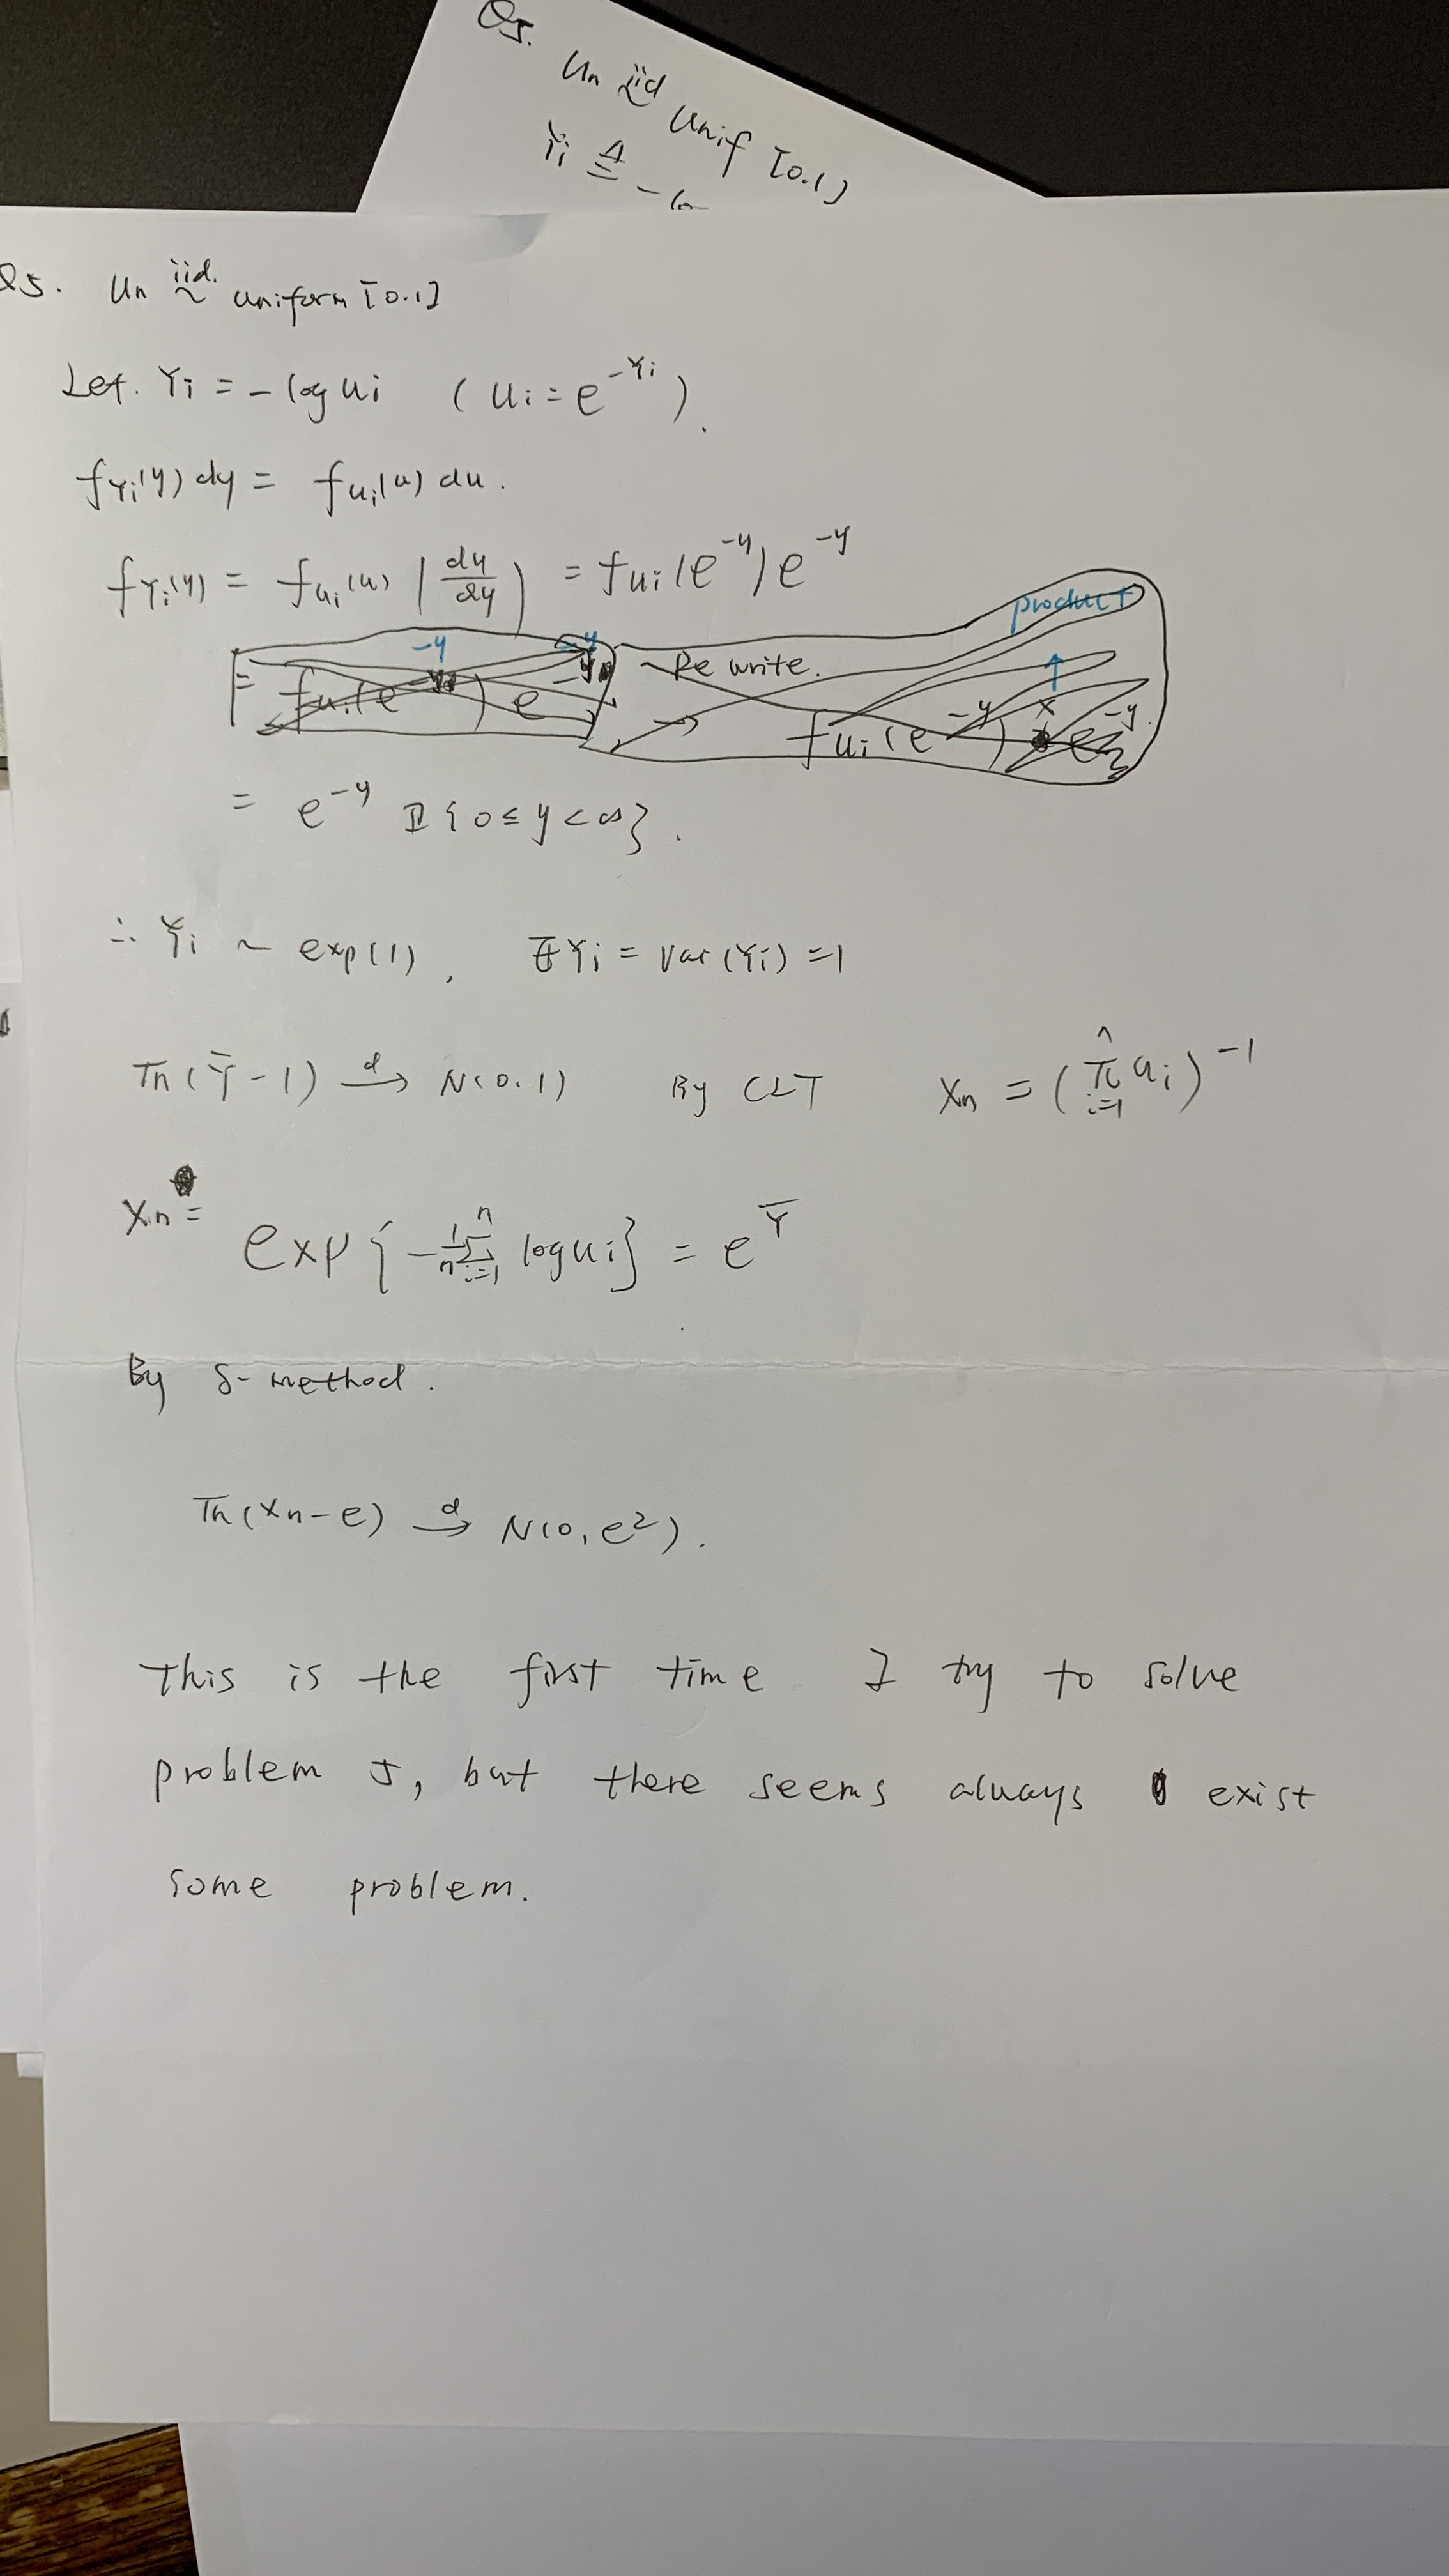 Q5.
Un iid Unif [0.1)
Yi ≜ -lo
Q5. Un iid. ~ uniform [0.1]
Let. Yi = - log ui ( ui = e^{-Yi} ).
f_{Yi}(y) dy = f_{ui}(u) du.
f_{Yi}(y) = f_{ui}(u) | du/dy | = f_{ui}(e^{-y}) e^{-y}
product
= f_{ui}(e^{-y}) e^{-y} Re write. f_{ui}(e^{-y}) x e^{-y}.
= e^{-y} 𝕀{0 ≤ y < ∞}.
∴ Yi ~ exp(1), EYi = Var(Yi) = 1
√n(Ȳ - 1) →d N(0.1) By CLT Xn = (∏_{i=1}^{n} ui)^{-1}
Xn = exp{-1/n Σ_{i=1}^{n} log ui} = e^{Ȳ}
By δ-method.
√n(Xn - e) →d N(0, e²).
This is the first time I try to solve
problem 5, but there seems always exist
some problem.